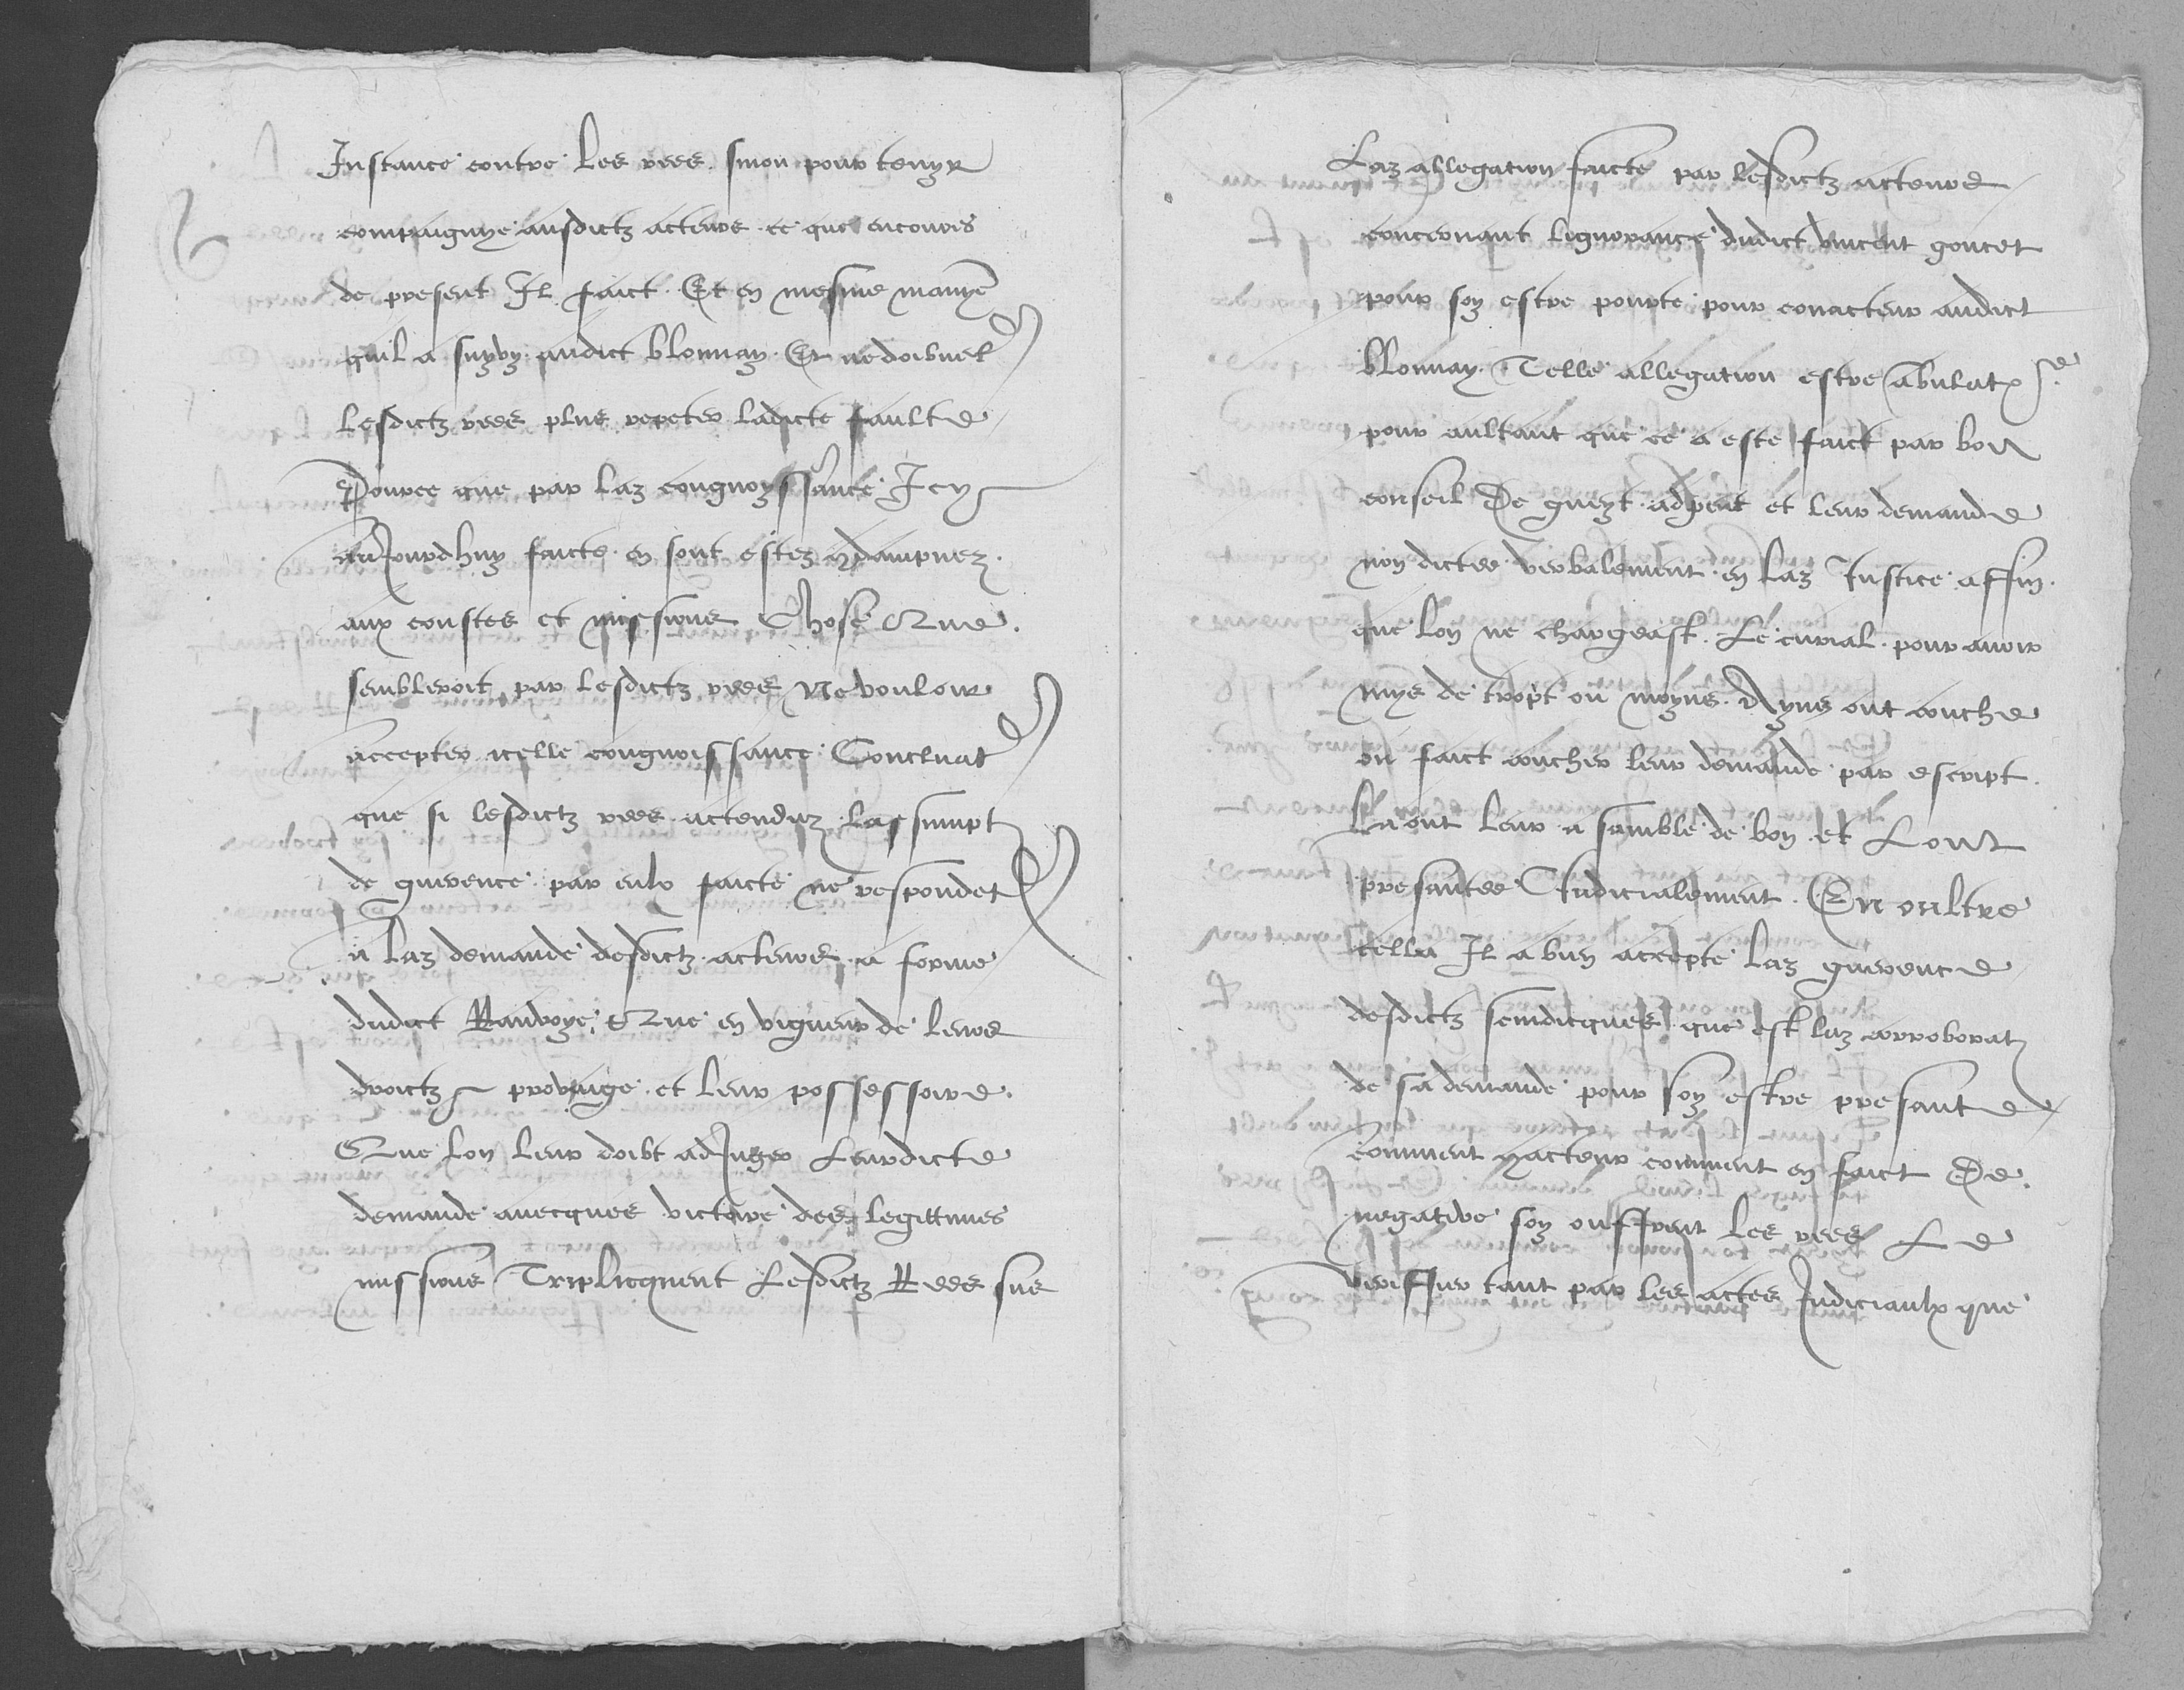 Instance contre les rees sinon pour tenyr
compaignye ausdictz acteurs ce que encoures
de present Il faict Et en mesme manye
quil a suyvy audict blonnay Et ne doibvent
lesdictz rees plus repeter ladicte faulte
Pource que par laz congnoyssance Icy
auJourdhuy faicte en sont estez condampnez
aux coustes et missions Chose Que
sembleroit par lesdictz rees Ne vouloir
accepter icelle congnoissance Concluat
que si lesdictz rees actenduz lassumpt
de guerence par eulx faicte ne respondet
a laz demande desdictz acteurs a forme
dudict Ranvoye Que en vigueur de leurs
droictz et leur possessoire
Que lon leur doibt adJuger Leurdicte
demande avecques victoire des legittimes
missions Triplicquent Lesdictz Rees sus
Laz allegation faicte par lesdictz acteurs
concernant lignorance dudict vincent goncet
pour soy estre pourte pour conacteur audict
blonnay Telle allegation estre
pour aultant que ce a este faict par bon
conseil De gueyt adpent et leur demande
non dictee verbalement en laz Justice affin
que lon ne chargeast Le curial pour avoir
mys de tropt ou moyns Ayns ont couche
ou faict coucher leur demande par escript
La ont leur a samble de bon et Lont
presantee Judicialement En oultre
cella Il a bien accepte laz guerence
desdictz scindicques que est laz corroborat
de sa demande pour soy estre presante
comment conacteur comment en faict De
negative soy ouffrent les rees Le
veriffier tant par les actes Judiciaulx que